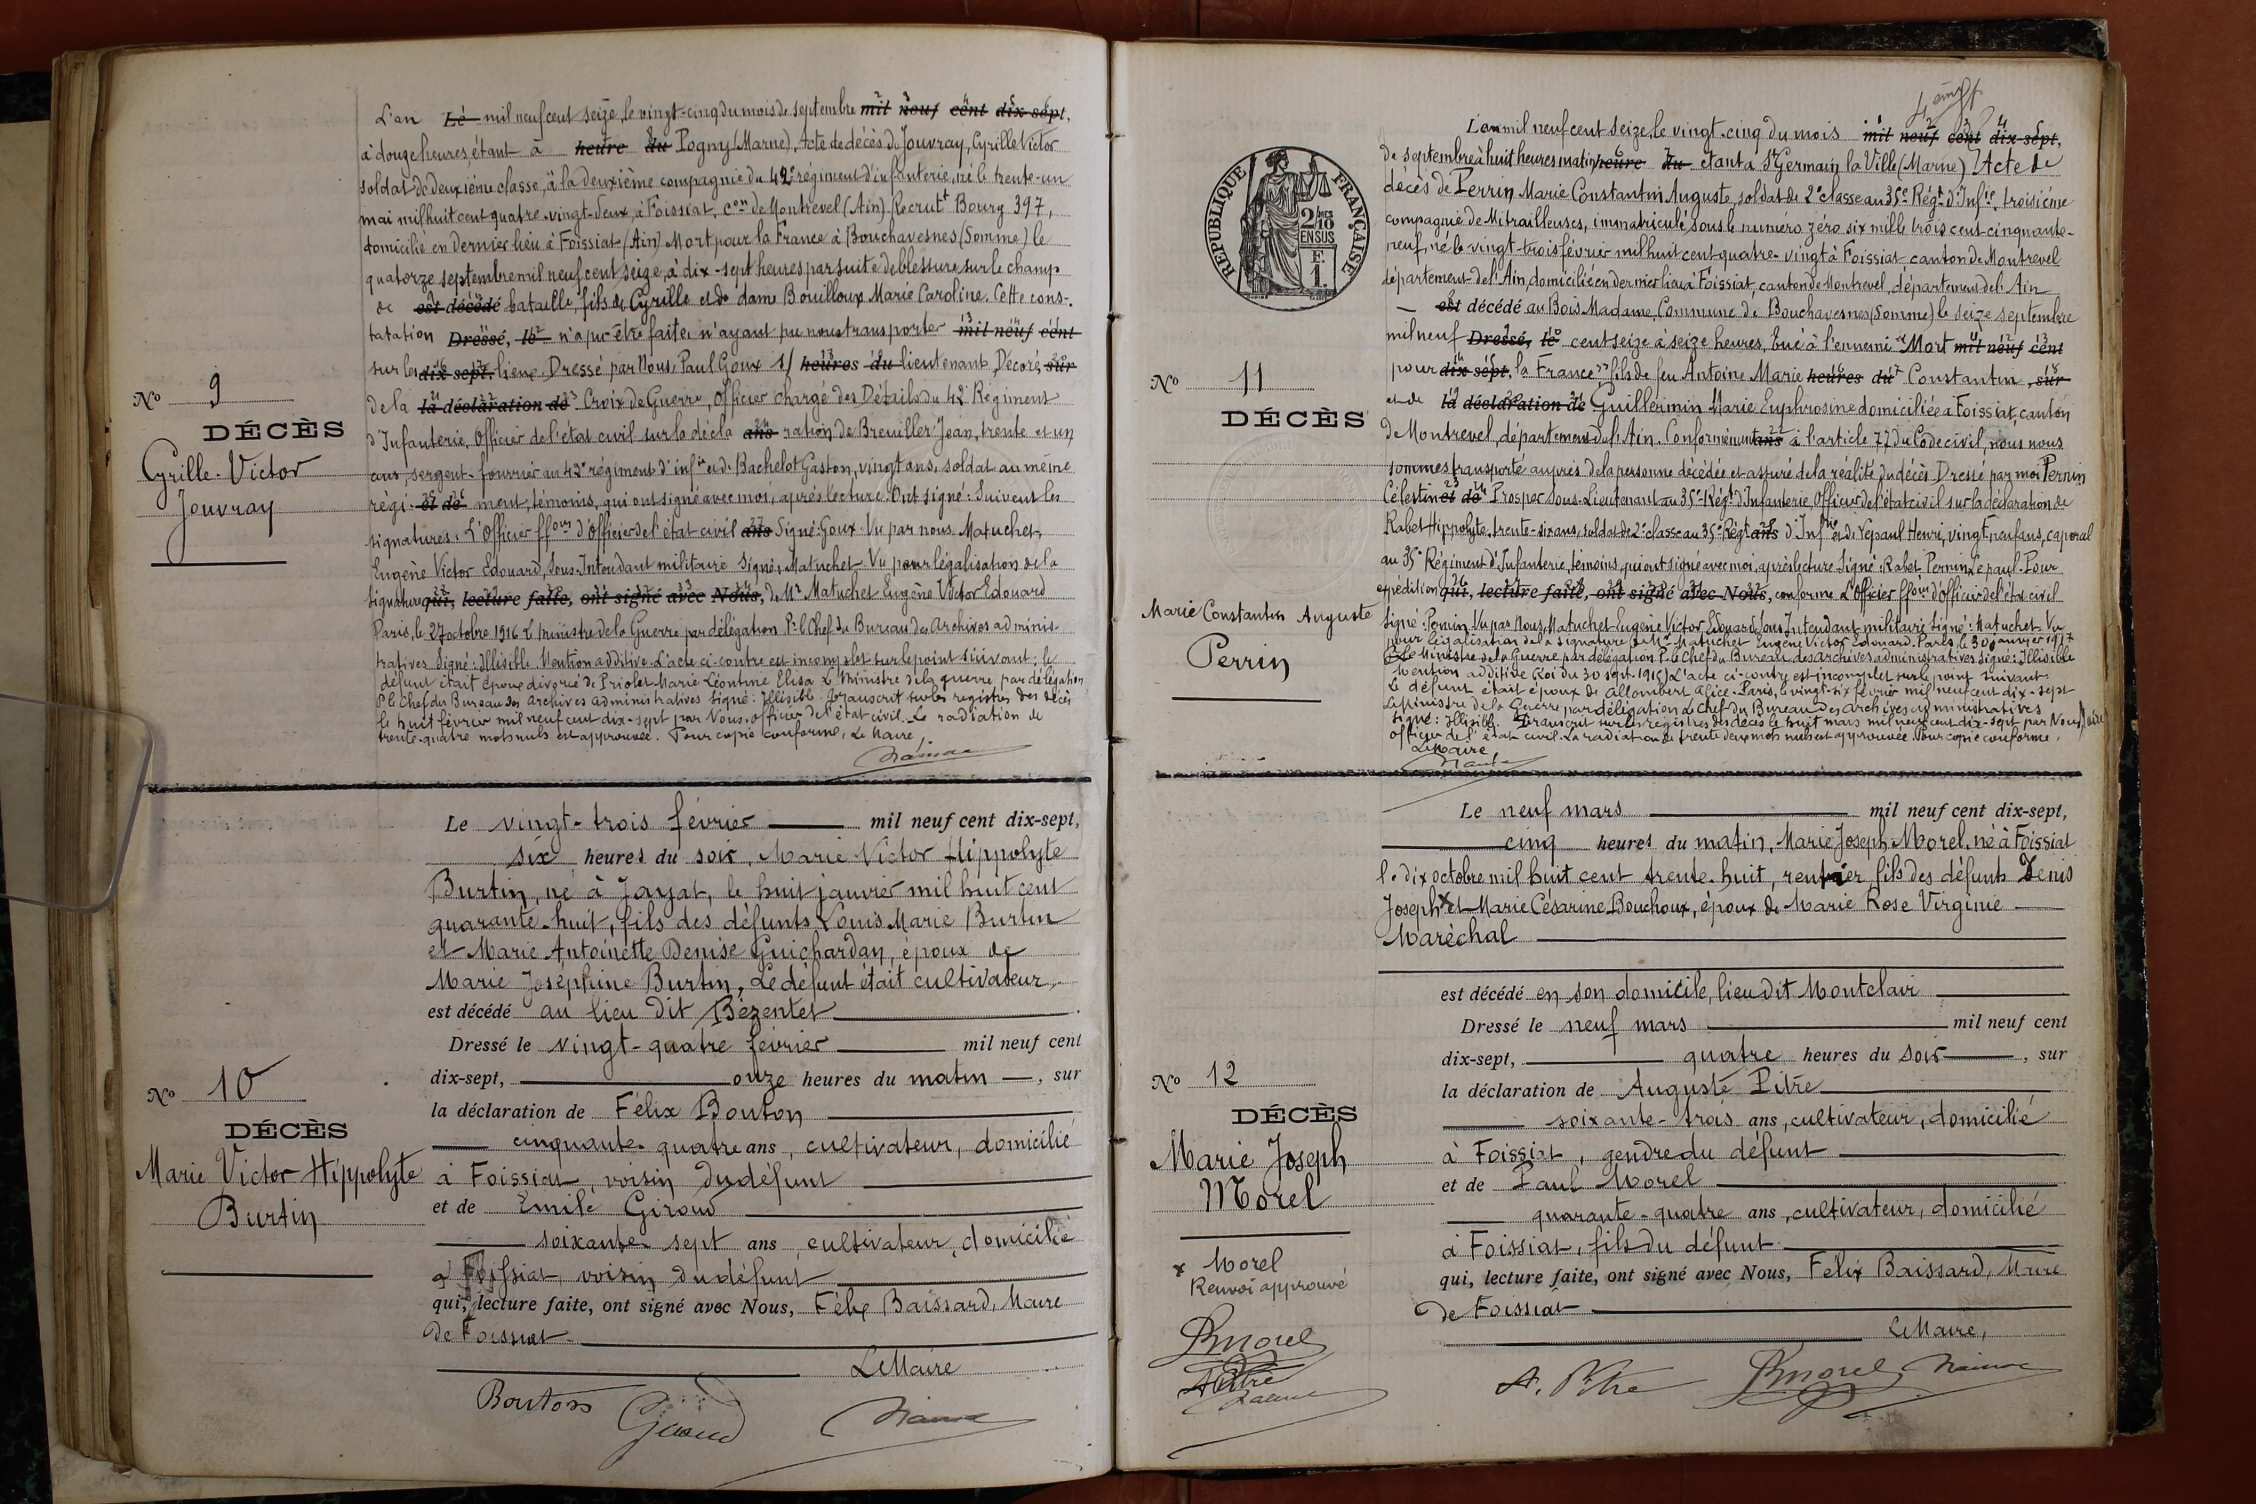 L'an Le mil neuf cent seize, le vingt-cinq du mois de septembre mil neuf cent dix-sept,
à douze heures étant à heure du Pogny (Marne), Acte de décès de Jouvray, Cyrille Victor
soldat de deuxième classe, à la deuxième compagnie du 42e régiment d'infanterie, né le trente-un
mai mil huit cent quatre-vingt-deux, à Foissiat, con de Montrevel (Ain) Recrutt Bourg 397,
domicilié en dernier lieu à Foissiat (Ain) Mort pour la France à Bouchavesnes (Somme) le
quatorze septembre mil neuf cent seize, à dix-sept heures par suite de blessure sur le champ
de est décédé bataille, fils de Cyrille et de dame Bouilloux Marie Caroline. Cette cons-
tatation Dressé, le n'a pu être faite n'ayant pu nous transporter mil neuf cent
sur les dix sept, lieux. Dressé par Nous, Paul Goux s/ heures du lieutenant, Décoré, sur
de la la déclaration de Croix de Guerre, Officier chargé des Détails du 42e Régiment
d'Infanterie, Officier de l'état civil sur la décla ans ration de Breuiller Jean, trente et un
ans, sergent-fourrier au 42e régiment d'infie et de Bachelot Gaston, vingt ans, soldat au même
régi- et de ment, témoins, qui ont signé avec moi, après lecture. Ont signé: Suivent les
signatures. L'Officier ffons d'Officier de l'état civil ans Signé: Goux. Vu par nous Matuchet,
Eugène Victor Edouard, Sous-Intendant militaire Signé: Matuchet. Vu pour légalisation de la
signature qui, lecture faite, ont signé avec Nous, de Mr Matuchet Eugène Victor Edouard
Paris, le 27 octobre 1916 L ministre de la Guerre par délégation P. le Chef du Bureau des Archives adminis-
tratives Signé: Illisible Mention additive. L'acte ci-contre est incomplet sur le point suivant; le
défunt était époux divorcé de Priolet Marie Léontine Elisa L Ministre de la guerre, par délégation
P le Chef du Bureau des Archives administratives signé: Illisible. Transcrit sur les registres des décès
le huit février mil neuf cent dix-sept par Nous, officier de l'état civil. La radiation de
trente-quatre mots nuls est approuvée. Pour copie conforme, Le Maire,
No 9
DÉCÈS
Cyrille-Victor
Jouvray
Le vingt-trois février mil neuf cent dix-sept,
six heures du soir, Marie Victor Hippolyte
Burtin, né à Jayat, le huit janvier mil huit cent
quarante-huit, fils des défunts Louis Marie Burtin
et Marie Antoinette Denise Guichardan, époux de
Marie Joséphine Burtin, Le défunt était cultivateur,
est décédé au lieu dit Bézentet
Dressé le vingt-quatre février mil neuf cent
dix-sept, onze heures du matin, sur
la déclaration de Félix Bouton
cinquante-quatre ans, cultivateur, domicilié
à Foissiat, voisin du défunt
et de Emile Giroud
soixante-sept ans, cultivateur, domicilié
à Foissiat, voisin du défunt
qui, lecture faite, ont signé avec Nous, Félix Baissard, Maire
de Foissiat
Le Maire
Bouton
No 10
DÉCÈS
Marie Victor Hippolyte
Burtin
L'an mil neuf cent seize, le vingt-cinq du mois mil neuf cent dix-sept,
de septembre à huit heures matin heure du étant à St Germain la Ville (Marne) Acte de
décès de Perrin Marie Constantin Auguste, soldat de 2e classe au 35e Régt d'Infie, troisième
compagnie de Mitrailleuses, immatriculé sous le numéro zéro six mille trois cent cinquante-
neuf, né le vingt-trois février mil huit cent quatre-vingt à Foissiat canton de Montrevel
département de l'Ain, domicilié en dernier lieu à Foissiat, canton de Montrevel, département de l'Ain
est décédé au Bois Madame, Commune de Bouchavesnes (Somme) le seize septembre
mil neuf Dressé, le cent seize à seize heures, tué à l'ennemi "Mort mil neuf cent
pour dix sept, la France" fils de feu Antoine Marie heures du Constantin, sur
et de la déclaration de Guillermin Marie Euphrosine domiciliée à Foissiat, canton
de Montrevel, département de l'Ain. Conformément ans à l'article 77 du Code civil, nous nous
sommes transporté auprès de la personne décédée et assuré de la réalité du décès. Dressé par moi Pernin
Célestin et de Prosper Sous-Lieutenant au 35e Régt d'Infanterie, Officier de l'état civil sur la déclaration de
Rabet Hippolyte, trente-six ans, soldat de 2e classe au 35e Régt ans d'Infrie et de Lépaul Henri, vingt-neuf ans, caporal
au 35e Régiment d'Infanterie, témoins, qui ont signé avec moi, après lecture Signé: Rabet Pernin Lépaul. Pour
expédition qui, lecture faite, ont signé avec Nous, conforme L'Officier ffons d'Officier de l'état civil
Signé: Pernin. Vu par Nous, Matuchet Eugène Victor Edouard Sous Intendant militaire Signé: Matuchet. Vu
pour légalisation de la signature de Mr Matuchet Eugène Victor Edouard. Paris, le 30 janvier 1917
Le Ministre de la Guerre par délégation P. le Chef du Bureau des archives administratives signé: Illisible
Mention additive (Loi du 30 sept. 1915) L'acte ci-contre est incomplet sur le point suivant.
Le défunt était époux de Allombert Alice. Paris, le vingt-six février mil neuf cent dix-sept
Le Ministre de la Guerre par délégation Le Chef du Bureau des Archives administratives
signé: Illisible. Transcrit sur les registres des décès le huit mars mil neuf cent dix-sept par Nous, Maire
officier de l'état civil. La radiation de trente deux mots nuls est approuvée. Pour copie conforme.
Le Maire
RÉPUBLIQUE FRANÇAISE
2/10 EN SUS
F. 1
No 11
DÉCÈS
Marie Constantin Auguste
Perrin
Le neuf mars mil neuf cent dix-sept,
cinq heures du matin, Marie Joseph Morel, né à Foissiat
le dix octobre mil huit cent trente-huit, rentier fils des défunts Denis
Joseph x et Marie Césarine Bouchoux, époux de Marie Rose Virginie
Maréchal
est décédé en son domicile, lieu dit Montclair
Dressé le neuf mars mil neuf cent
dix-sept, quatre heures du soir, sur
la déclaration de Auguste Pitre
soixante-trois ans, cultivateur, domicilié
à Foissiat, gendre du défunt
et de Paul Morel
quarante-quatre ans, cultivateur, domicilié
à Foissiat, fils du défunt
qui, lecture faite, ont signé avec Nous, Félix Baissard, Maire
de Foissiat
Le Maire,
A. Pitre
Morel
No 12
DÉCÈS
Marie Joseph
Morel
x Morel
Renvoi approuvé
Morel
A Pitre